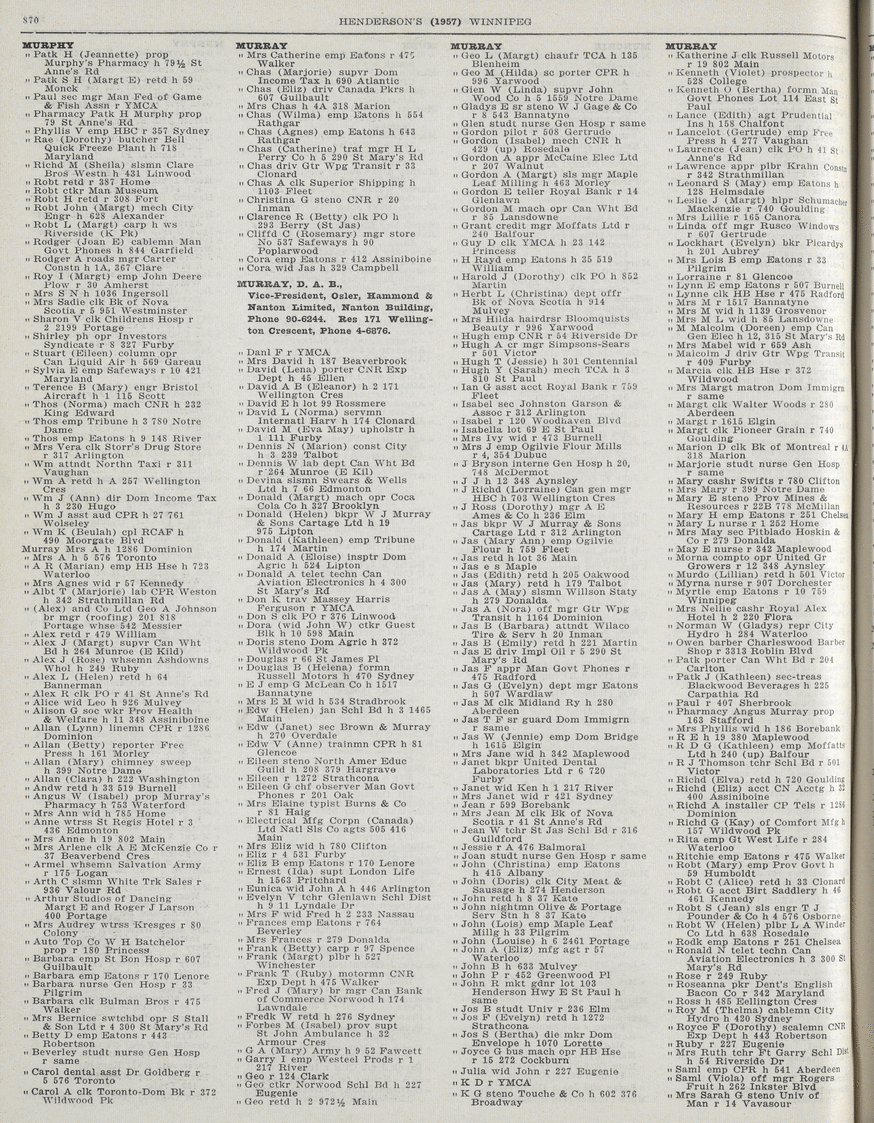 870
HENDERSON'S (1957) WINNIPEG
MURPHY
" Patk H (Jeannette) prop
Murphy's Pharmacy h 79½ St
Anne's Rd
" Patk S H (Margt E) retd h 59
Monck
" Paul sec mgr Man Fed of Game
& Fish Assn r YMCA
" Pharmacy Patk H Murphy prop
79 St Anne's Rd
" Phyllis V emp HBC r 357 Sydney
" Rae (Dorothy) butcher Bell
Quick Freeze Plant h 718
Maryland
" Richd M (Sheila) slsmn Clare
Bros Westn h 431 Linwood
" Robt retd r 387 Home
" Robt ctkr Man Museum
" Robt H retd r 308 Fort
" Robt John (Margt) mech City
Engr h 628 Alexander
" Robt L (Margt) carp h ws
Riverside (K Pk)
" Rodger (Joan E) cablemn Man
Govt Phones h 844 Garfield
" Rodger A roads mgr Carter
Constn h 1A, 367 Clare
" Roy I (Margt) emp John Deere
Plow r 30 Amherst
" Mrs S N h 1036 Ingersoll
" Mrs Sadie clk Bk of Nova
Scotia r 5 951 Westminster
" Sharon V clk Childrens Hosp r
2 2199 Portage
" Shirley ph opr Investors
Syndicate r 8 327 Furby
" Stuart (Eileen) column opr
Can Liquid Air h 569 Gareau
" Sylvia E emp Safeways r 10 421
Maryland
" Terence B (Mary) engr Bristol
Aircraft h 1 115 Scott
" Thos (Norma) mach CNR h 232
King Edward
" Thos emp Tribune h 3 780 Notre
Dame
" Thos emp Eatons h 9 148 River
" Mrs Vera clk Storr's Drug Store
r 317 Arlington
" Wm attndt Northn Taxi r 311
Vaughan
" Wm A retd h A 257 Wellington
Cres
" Wm J (Ann) dir Dom Income Tax
h 3 230 Hugo
" Wm J asst aud CPR h 27 761
Wolseley
" Wm K (Beulah) cpl RCAF h
490 Moorgate Blvd
Murray Mrs A h 1286 Dominion
" Mrs A h 5 576 Toronto
" A R (Marian) emp HB Hse h 723
Waterloo
" Mrs Agnes wid r 57 Kennedy
" Albt T (Marjorie) lab CPR Weston
h 342 Strathmillan Rd
" (Alex) and Co Ltd Geo A Johnson
br mgr (roofing) 201 818
Portage whse 542 Messier
" Alex retd r 479 William
" Alex J (Margt) supvr Can Wht
Bd h 264 Munroe (E Kild)
" Alex J (Rose) whsemn Ashdowns
Whol h 249 Ruby
" Alex L (Helen) retd h 64
Bannerman
" Alex R clk PO r 41 St Anne's Rd
" Alice wid Leo h 926 Mulvey
" Alison G soc wkr Prov Health
& Welfare h 11 348 Assiniboine
" Allan (Lynn) linemn CPR r 1286
Dominion
" Allan (Betty) reporter Free
Press h 161 Morley
" Allan (Mary) chimney sweep
h 399 Notre Dame
" Allan (Clara) h 222 Washington
" Andw retd h 33 519 Burnell
" Angus W (Isabel) prop Murray's
Pharmacy h 753 Waterford
" Mrs Ann wid h 785 Home
" Anne wtrss St Regis Hotel r 3
436 Edmonton
" Mrs Anne h 19 802 Main
" Mrs Arlene clk A E McKenzie Co r
37 Beaverbend Cres
" Armel whsemn Salvation Army
r 175 Logan
" Arth C slsmn White Trk Sales r
936 Valour Rd
" Arthur Studios of Dancing
Margt E and Roger J Larson
400 Portage
" Mrs Audrey wtrss Kresges r 80
Colony
" Auto Top Co W H Batchelor
prop r 180 Princess
" Barbara emp St Bon Hosp r 607
Guilbault
" Barbara emp Eatons r 170 Lenore
" Barbara nurse Gen Hosp r 33
Pilgrim
" Barbara clk Bulman Bros r 475
Walker
" Mrs Bernice swtchbd opr S Stall
& Son Ltd r 4 300 St Mary's Rd
" Betty D emp Eatons r 443
Robertson
" Beverley studt nurse Gen Hosp
r same
" Carol dental asst Dr Goldberg r
5 576 Toronto
" Carol A clk Toronto-Dom Bk r 372
Wildwood Pk
MURRAY
" Mrs Catherine emp Eatons r 475
Walker
" Chas (Marjorie) supvr Dom
Income Tax h 690 Atlantic
" Chas (Eliz) driv Canada Pkrs h
607 Guilbault
" Mrs Chas h 4A 318 Marion
" Chas (Wilma) emp Eatons h 554
Rathgar
" Chas (Agnes) emp Eatons h 643
Rathgar
" Chas (Catherine) traf mgr H L
Perry Co h 5 290 St Mary's Rd
" Chas driv Gtr Wpg Transit r 33
Clonard
" Chas A clk Superior Shipping h
1103 Fleet
" Christina G steno CNR r 20
Inman
" Clarence R (Betty) clk PO h
293 Berry (St Jas)
" Cliffd C (Rosemary) mgr store
No 537 Safeways h 90
Poplarwood
" Cora emp Eatons r 412 Assiniboine
" Cora wid Jas h 329 Campbell
MURRAY, D. A. B.,
Vice-President, Osler, Hammond &
Nanton Limited, Nanton Building,
Phone 90-6244. Res 171 Welling-
ton Crescent, Phone 4-6876.
" Danl F r YMCA
" Mrs David h 187 Beaverbrook
" David (Lena) porter CNR Exp
Dept h 45 Ellen
" David A B (Eleanor) h 2 171
Wellington Cres
" David E h lot 99 Rossmere
" David L (Norma) servmn
Internatl Harv h 174 Clonard
" David M (Eva May) upholstr h
1 111 Furby
" Dennis N (Marion) const City
h 3 239 Talbot
" Dennis W lab dept Can Wht Bd
r 264 Munroe (E Kil)
" Devina slsmn Swears & Wells
Ltd h 7 66 Edmonton
" Donald (Margt) mach opr Coca
Cola Co h 327 Brooklyn
" Donald (Helen) bkpr W J Murray
& Sons Cartage Ltd h 19
975 Lipton
" Donald (Kathleen) emp Tribune
h 174 Martin
" Donald A (Eloise) insptr Dom
Agric h 524 Lipton
" Donald A telet techn Can
Aviation Electronics h 4 300
St Mary's Rd
" Don K trav Massey Harris
Ferguson r YMCA
" Don S clk PO r 376 Linwood
" Dora (wid John W) ctkr Guest
Blk h 10 598 Main
" Doris steno Dom Agric h 372
Wildwood Pk
" Douglas r 66 St James Pl
" Douglas B (Helena) formn
Russell Motors h 470 Sydney
" E J emp G McLean Co h 1517
Bannatyne
" Mrs E M wid h 534 Stradbrook
" Edw (Helen) jan Schl Bd h 3 1465
Main
" Edw (Janet) sec Brown & Murray
h 270 Overdale
" Edw V (Anne) trainmn CPR h 81
Glencoe
" Eileen steno North Amer Educ
Guild h 208 379 Hargrave
" Eileen r 1272 Strathcona
" Eileen G chf observer Man Govt
Phones r 201 Oak
" Mrs Elaine typist Burns & Co
r 81 Haig
" Electrical Mfg Corpn (Canada)
Ltd Natl Sls Co agts 505 416
Main
" Mrs Eliz wid h 780 Clifton
" Eliz r 4 531 Furby
" Eliz B emp Eatons r 170 Lenore
" Ernest (Ida) supt London Life
h 1563 Pritchard
" Eunica wid John A h 446 Arlington
" Evelyn V tchr Glenlawn Schl Dist
h 9 11 Lyndale Dr
" Mrs F wid Fred h 2 233 Nassau
" Frances emp Eatons r 764
Beverley
" Mrs Frances r 279 Donalda
" Frank (Betty) carp r 97 Spence
" Frank (Margt) plbr h 527
Winchester
" Frank T (Ruby) motormn CNR
Exp Dept h 475 Walker
" Fred J (Mary) br mgr Can Bank
of Commerce Norwood h 174
Lawndale
" Fredk W retd h 276 Sydney
" Forbes M (Isabel) prov supt
St John Ambulance h 32
Armour Cres
" G A (Mary) Army h 9 52 Fawcett
" Garry I emp Westeel Prods r 1
217 River
" Geo r 124 Clark
" Geo ctkr Norwood Schl Bd h 227
Eugenie
" Geo retd h 2 972½ Main
MURRAY
" Geo L (Margt) chaufr TCA h 135
Blenheim
" Geo M (Hilda) sc porter CPR h
996 Yarwood
" Glen W (Linda) supvr John
Wood Co h 5 1559 Notre Dame
" Gladys E sr steno W J Gage & Co
r 8 543 Bannatyne
" Glen studt nurse Gen Hosp r same
" Gordon pilot r 508 Gertrude
" Gordon (Isabel) mech CNR h
429 (up) Rosedale
" Gordon A appr McCaine Elec Ltd
r 207 Walnut
" Gordon A (Margt) sls mgr Maple
Leaf Milling h 463 Morley
" Gordon E teller Royal Bank r 14
Glenlawn
" Gordon M mach opr Can Wht Bd
r 85 Lansdowne
" Grant credit mgr Moffats Ltd r
240 Balfour
" Guy D clk YMCA h 23 142
Princess
" H Rayd emp Eatons h 35 519
William
" Harold J (Dorothy) clk PO h 852
Martin
" Herbt L (Christina) dept offr
Bk of Nova Scotia h 914
Mulvey
" Mrs Hilda hairdrsr Bloomquists
Beauty r 996 Yarwood
" Hugh emp CNR r 54 Riverside Dr
" Hugh A cr mgr Simpsons-Sears
r 501 Victor
" Hugh T (Jessie) h 301 Centennial
" Hugh Y (Sarah) mech TCA h 3
810 St Paul
" Ian G asst acct Royal Bank r 759
Fleet
" Isabel sec Johnston Garson &
Assoc r 312 Arlington
" Isabel r 120 Woodhaven Blvd
" Isabella lot 69 E St Paul
" Mrs Ivy wid r 473 Burnell
" Mrs J emp Ogilvie Flour Mills
r 4, 354 Dubuc
" J Bryson interne Gen Hosp h 20,
748 McDermot
" J J h 12 348 Aynsley
" J Richd (Lorraine) Can gen mgr
HBC h 703 Wellington Cres
" J Ross (Dorothy) mgr A E
Ames & Co h 236 Elm
" Jas bkpr W J Murray & Sons
Cartage Ltd r 312 Arlington
" Jas (Mary Ann) emp Ogilvie
Flour h 759 Fleet
" Jas retd h lot 36 Main
" Jas e s Maple
" Jas (Edith) retd h 205 Oakwood
" Jas (Mary) retd h 179 Talbot
" Jas A (May) slsmn Willson Staty
h 279 Donalda
" Jas A (Nora) off mgr Gtr Wpg
Transit h 1164 Dominion
" Jas B (Barbara) attndt Wilaco
Tire & Serv h 20 Inman
" Jas B (Emily) retd h 221 Martin
" Jas E driv Impl Oil r 5 290 St
Mary's Rd
" Jas F appr Man Govt Phones r
475 Radford
" Jas G (Evelyn) dept mgr Eatons
h 507 Wardlaw
" Jas M clk Midland Ry h 280
Aberdeen
" Jas T F sr guard Dom Immigrn
r same
" Jas W (Jennie) emp Dom Bridge
h 1615 Elgin
" Mrs Jane wid h 342 Maplewood
" Janet bkpr United Dental
Laboratories Ltd r 6 720
Furby
" Janet wid Ken h 1 217 River
" Mrs Janet wid r 421 Sydney
" Jean r 599 Borebank
" Mrs Jean M clk Bk of Nova
Scotia r 41 St Anne's Rd
" Jean W tchr St Jas Schl Bd r 316
Guildford
" Jessie r A 476 Balmoral
" Joan studt nurse Gen Hosp r same
" John (Christina) emp Eatons
h 415 Albany
" John (Doris) clk City Meat &
Sausage h 274 Henderson
" John retd h 8 37 Kate
" John nightmn Olive & Portage
Serv Stn h 8 37 Kate
" John (Lois) emp Maple Leaf
Millg h 33 Pilgrim
" John (Louise) h 6 2461 Portage
" John A (Eliz) mfg agt r 57
Waterloo
" John B h 633 Mulvey
" John P r 452 Greenwood Pl
" John R mkt gdnr lot 103
Henderson Hwy E St Paul h
same
" Jos B studt Univ r 236 Elm
" Jos F (Evelyn) retd h 1272
Strathcona
" Jos S (Bertha) die mkr Dom
Envelope h 1070 Lorette
" Joyce G bus mach opr HB Hse
r 15 272 Cockburn
" Julia wid John r 227 Eugenie
" K D r YMCA
" K G steno Touche & Co h 602 376
Broadway
MURRAY
" Katherine J clk Russell Motors
r 19 802 Main
" Kenneth (Violet) prospector h
528 College
" Kenneth O (Bertha) formn Man
Govt Phones Lot 114 East St
Paul
" Lance (Edith) agt Prudential
Ins h 158 Chalfont
" Lancelot (Gertrude) emp Free
Press h 4 277 Vaughan
" Laurence (Jean) clk PO h 41 St
Anne's Rd
" Lawrence appr plbr Krahn Constn
r 342 Strathmillan
" Leonard S (May) emp Eatons h
128 Helmsdale
" Leslie J (Margt) hlpr Schumacher
Mackenzie r 740 Goulding
" Mrs Lillie r 165 Canora
" Linda off mgr Rusco Windows
r 607 Gertrude
" Lockhart (Evelyn) bkr Picardys
h 201 Aubrey
" Mrs Lois B emp Eatons r 33
Pilgrim
" Lorraine r 81 Glencoe
" Lynn E emp Eatons r 507 Burnell
" Lynne clk HB Hse r 475 Radford
" Mrs M r 1517 Bannatyne
" Mrs M wid h 1139 Grosvenor
" Mrs M L wid h 85 Lansdowne
" M Malcolm (Doreen) emp Can
Gen Elec h 12, 315 St Mary's Rd
" Mrs Mabel wid r 659 Ash
" Malcolm J driv Gtr Wpg Transit
r 409 Furby
" Marcia clk HB Hse r 372
Wildwood
" Mrs Margt matron Dom Immigrn
r same
" Margt clk Walter Woods r 280
Aberdeen
" Margt r 1615 Elgin
" Margt clk Pioneer Grain r 740
Goulding
" Marion D clk Bk of Montreal r 4A
318 Marion
" Marjorie studt nurse Gen Hosp
r same
" Mary cashr Swifts r 780 Clifton
" Mrs Mary r 399 Notre Dame
" Mary E steno Prov Mines &
Resources r 22B 778 McMillan
" Mary H emp Eatons r 251 Chelsea
" Mary L nurse r 1 252 Home
" Mrs May sec Pitblado Hoskin &
Co r 279 Donalda
" May E nurse r 342 Maplewood
" Morna compto opr United Gr
Growers r 12 348 Aynsley
" Murdo (Lillian) retd h 501 Victor
" Myrna nurse r 907 Dorchester
" Myrtle emp Eatons r 10 759
Winnipeg
" Mrs Nellie cashr Royal Alex
Hotel h 2 220 Flora
" Norman W (Gladys) repr City
Hydro h 284 Waterloo
" Owen barber Charleswood Barber
Shop r 3313 Roblin Blvd
" Patk porter Can Wht Bd r 204
Carlton
" Patk J (Kathleen) sec-treas
Blackwood Beverages h 225
Carpathia Rd
" Paul r 407 Sherbrook
" Pharmacy Angus Murray prop
163 Stafford
" Mrs Phyllis wid h 186 Borebank
" R E h 19 380 Maplewood
" R D G (Kathleen) emp Moffatts
Ltd h 240 (up) Balfour
" R J Thomson tchr Schl Bd r 501
Victor
" Richd (Elva) retd h 720 Goulding
" Richd (Eliz) acct CN Acctg h 32
400 Assiniboine
" Richd A installer CP Tels r 1286
Dominion
" Richd G (Kay) of Comfort Mfg h
157 Wildwood Pk
" Rita emp Gt West Life r 284
Waterloo
" Ritchie emp Eatons r 475 Walker
" Robt (Mary) emp Prov Govt h
59 Humboldt
" Robt C (Alice) retd h 33 Clonard
" Robt G acct Birt Saddlery h 46
461 Kennedy
" Robt S (Jean) sls engr T J
Pounder & Co h 4 576 Osborne
" Robt W (Helen) plbr L A Winder
Co Ltd h 638 Rosedale
" Rodk emp Eatons r 251 Chelsea
" Ronald N telet techn Can
Aviation Electronics h 3 300 St
Mary's Rd
" Rose r 249 Ruby
" Roseanna pkr Dent's English
Bacon Co r 342 Maryland
" Ross h 485 Eellington Cres
" Roy M (Thelma) cablemn City
Hydro h 430 Sydney
" Royce F (Dorothy) scalemn CNR
Exp Dept h 443 Robertson
" Ruby r 227 Eugenie
" Mrs Ruth tchr Ft Garry Schl Dist
h 54 Riverside Dr
" Saml emp CPR h 541 Aberdeen
" Saml (Viola) off mgr Rogers
Fruit h 262 Inkster Blvd
" Mrs Sarah G steno Univ of
Man r 14 Vavasour